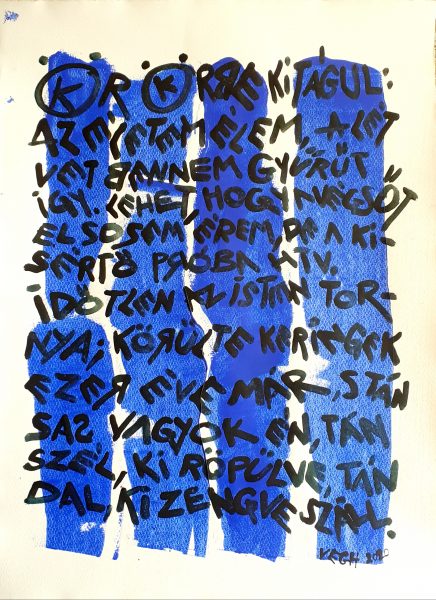 KÖRKÖRBE KITÁGUL:
AZ ÉLETEM ÉLEM, A LÉT
VET BENNEM GYŰRŰT
ÍGY. LEHET, HOGY A VÉGSŐT
EL SOSEM ÉREM, DE A KI-
SÉRTŐ PRÓBA HÍV.
IDŐTLEN AZ ISTEN TOR-
NYA; KÖRÜLTE KERINGEK
EZER ÉVE MÁR, S TÁN
SAS VAGYOK ÉN, TÁN
SZÉL, KI RÖPÜLVE, TÁN
DAL, KI ZENGVE SZÁLL.
KEGH 2020